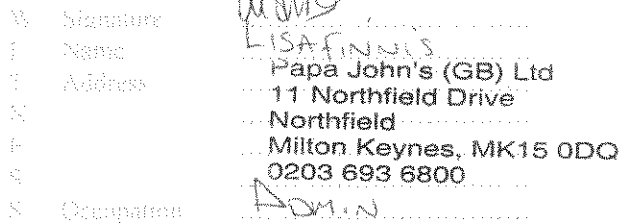 W Signature
I Name LISA FINNIS
T Address Papa John's (GB) Ltd
11 Northfield Drive
N Northfield
E Milton Keynes, MK15 0DQ
S 0203 693 6800
S Occupation ADMIN